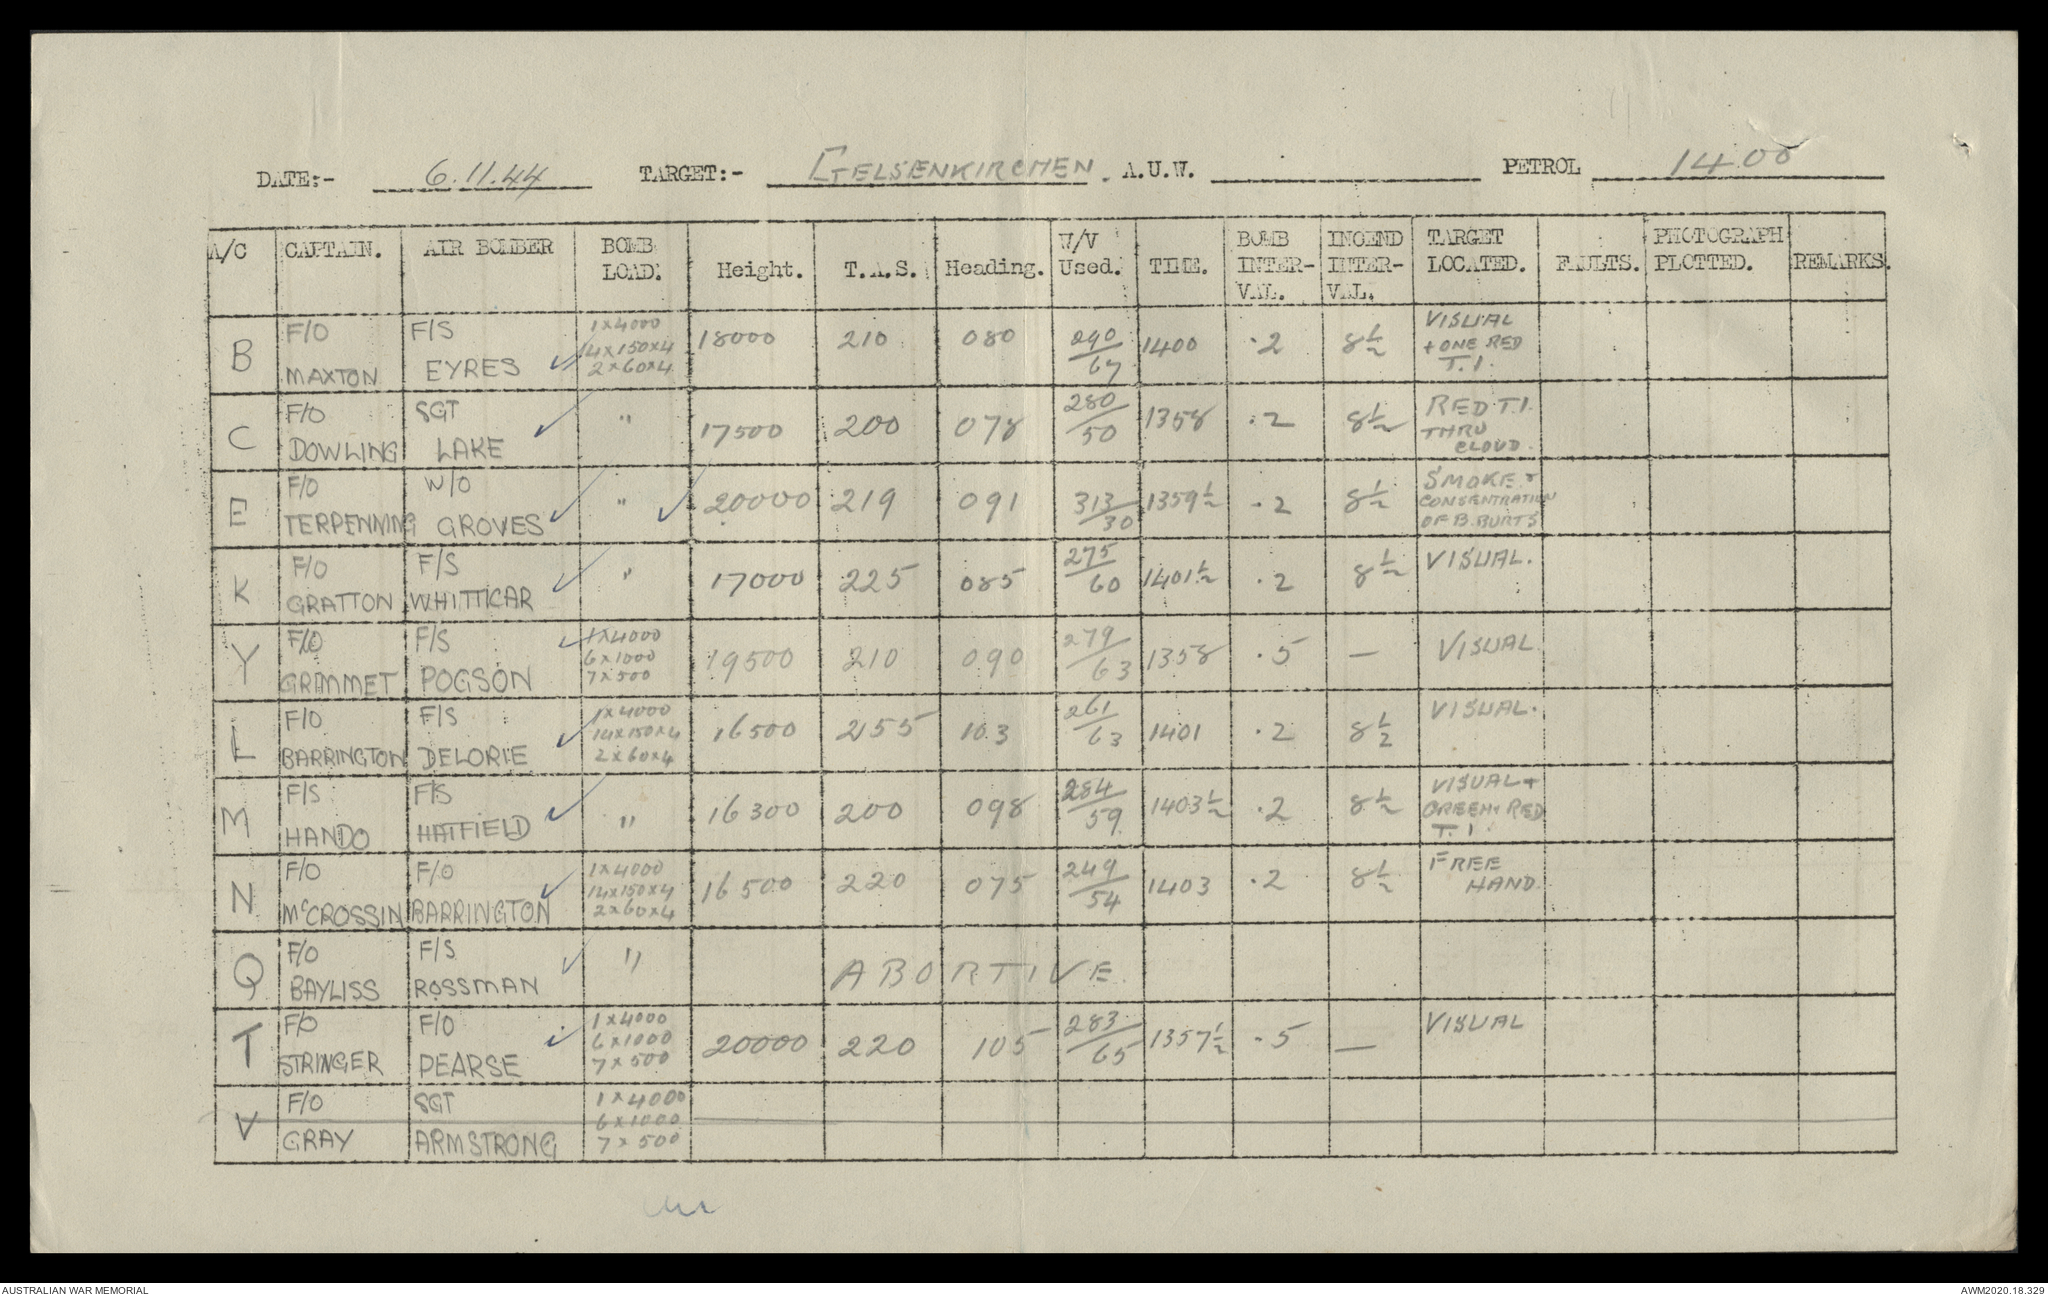 DATE:- 6.11.44 TARGET:- GELSENKIRCHEN. A.U.W. PETROL 1400
A/C CAPTAIN. AIR BOMBER BOMB LOAD. Height. T.A.S. Heading. W/V Used. TIME. BOMB INTER-VAL. INCEND INTER-VAL. TARGET LOCATED. FAULTS. PHOTOGRAPH PLOTTED. REMARKS.
B F/O MAXTON F/S EYRES ✓ 1x4000 14x150x4 2x60x4 18000 210 080 290/67 1400 .2 8½ VISUAL + ONE RED T.I.
C F/O DOWLING SGT LAKE ✓ " 17500 200 078 280/50 1358 .2 8½ RED T.I. THRU CLOUD.
E F/O TERPENNING W/O GROVES ✓ " ✓ 20000 219 091 313/30 1359½ .2 8½ SMOKE & CONSENTRATION OF B. BURTS
K F/O GRATTON F/S WHITTICAR ✓ " 17000 225 085 275/60 1401½ .2 8½ VISUAL.
Y F/O GRIMMET F/S POGSON ✓ 1x4000 6x1000 7x500 19500 210 090 279/63 1358 .5 — VISUAL
L F/O BARRINGTON F/S DELORIE ✓ 1x4000 14x150x4 2x60x4 16500 255 103 261/63 1401 .2 8½ VISUAL.
M F/S HANDO F/S HATFIELD ✓ " 16300 200 098 284/59 1403½ .2 8½ VISUAL + GREEN + RED T.I.
N F/O McCROSSIN F/O BARRINGTON ✓ 1x4000 14x150x4 2x60x4 16500 220 075 249/54 1403 .2 8½ FREE HAND.
Q F/O BAYLISS F/S ROSSMAN ✓ " ABORTIVE
T F/O STRINGER F/O PEARSE ✓ 1x4000 6x1000 7x500 20000 220 105 283/65 1357½ .5 — VISUAL
V F/O GRAY SGT ARMSTRONG 1x4000 6x1000 7x500
AUSTRALIAN WAR MEMORIAL AWM2020.18.329